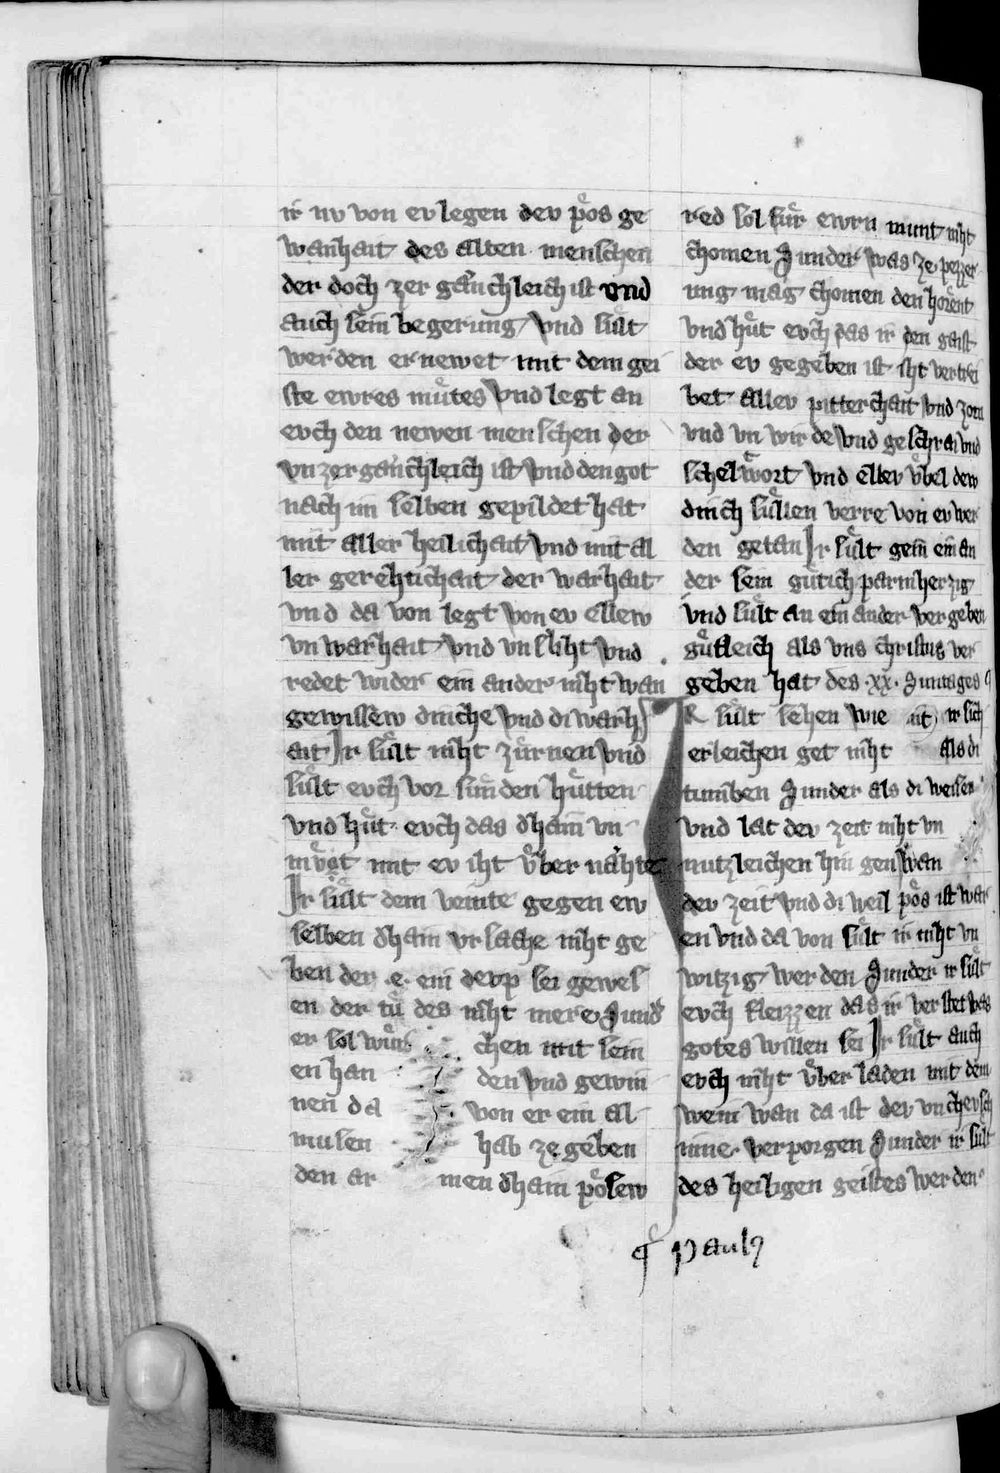 ir nv von ev legen dev poͤs ge
wanhait des alten menschen
der doch zer gaͤnchleich ist vnd
auch seín begerung vnd suͤlt
werden er newet mit dem gei
ste ewres muͤtes vnd legt an
evch den newen menschen der
vnzergaͤnchleich ist vnd den got
nach im selben gepildet hat
mit aller heilichait vnd mit al
ler gerehtichait der warhait
vnd da von legt von ev ellew
vn warhait vnd vnsliht vnd
redet wider ein ander niht wan
gewissew dinche vnd di warh
ait Ir suͤlt niht zuͤrnen vnd
suͤlt evch vor suͤnden huͤtten
vnd huͤt evch das dhain vn
muͦst mit ev iht vͤber nahte
Ir suͤlt dem veinte gegen ew
selben dhain vrsache niht ge
ben der .e. ein devp sei gewes
en der tuͤ des niht mere sund̓
er sol wuͤr chen mit sein
en han den vnd gewin
nen da von er ein al
musen hab ze geben
den ar men dhain poͤsew
red sol fuͤr ewrn munt niht
chomen sunder was ze pezzer
ung mag chomen den hoͤrent
vnd huͤt evch das ir den gaist
der ev gegeben ist iht vertrei
bet allev pitterchait vnd zorn
vnd vn wirde vnd geschrai vnd
scheltwort vnd ellev vͤbel dew
dinch suͤllen verre von ev wer
den getan Ir suͤlt gein ein an
der sein guͤtich parmherzig
vnd suͤlt an ein ander vergeben
guͤtleich als vns christus ver
geben hat des .xx. suntages
IR suͤlt sehen wie ir sich
erleichen get niht als di
tumben sunder als di weisen
vnd lat dev zeit niht vn
nutzleichen hin gen wan
dev zeit vnd di weil poͤs ist war
en vnd da von suͤlt ir niht vn
witzig werden sunder ir suͤlt
evch fleizzen das ir verstet was
gotes willen sei Ir suͤlt auch
evch niht vͤber laden mit dem
wein wan da ist dev vncheusch
inne verporgen sunder ir suͤlt
des heiligen geistes werden
paulꝰ